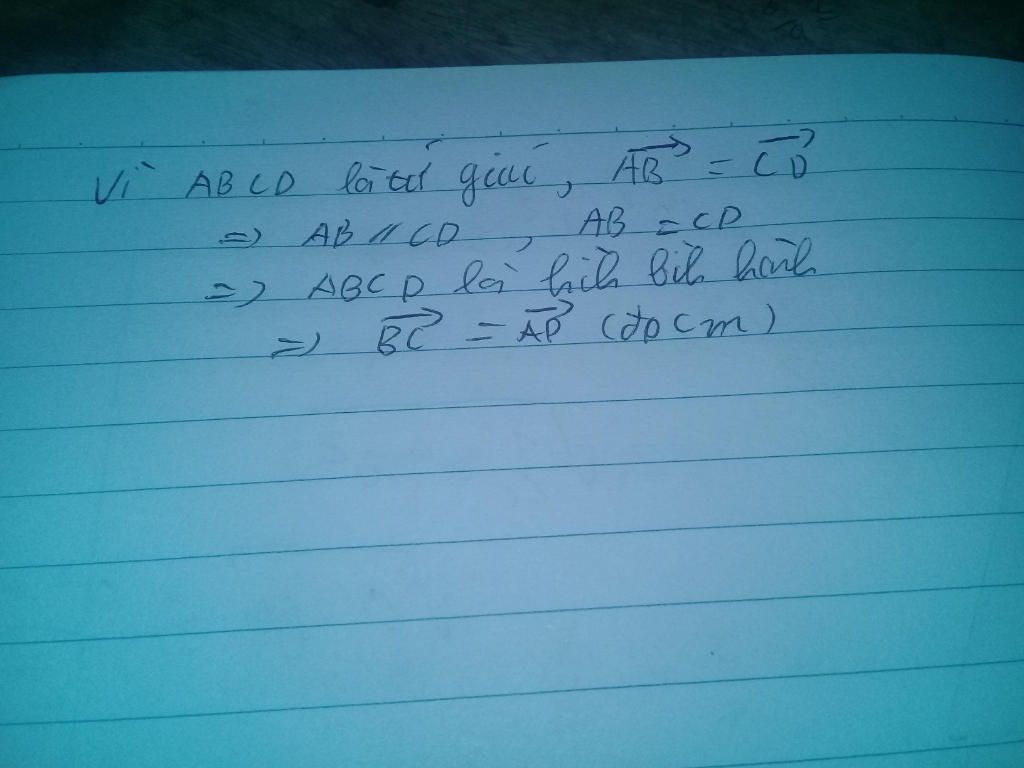 Vì ABCD là tứ giác, $\overrightarrow{AB} = \overrightarrow{CD}$
=> AB // CD , AB = CD
=> ABCD là hình bình hành
=> $\overrightarrow{BC} = \overrightarrow{AD}$ (đpcm)